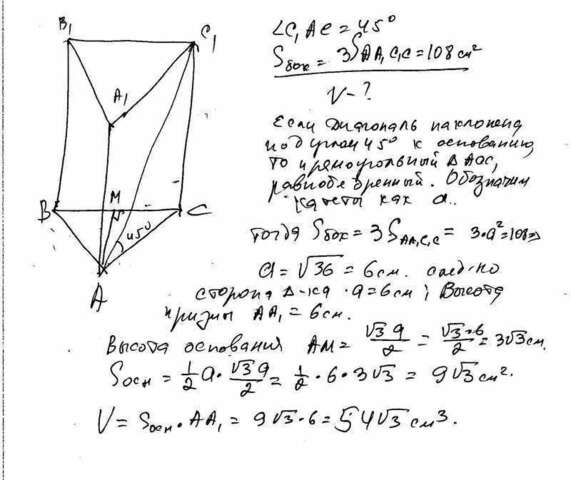 B₁
C₁
A₁
M
B
C
45°
A
∠C₁AC=45°
Sбок= 3SAA₁C₁C=108см²
V-?
Если диагональ наклонена
под углом 45° к основанию
то прямоугольный Δ
равнобедренный. Обозначим
катеты как a..
тогда Sбок=3SAA₁C₁C= 3·a²=108⇒
a=√36=6см. след-но
сторона Δ-ка ·a=6см; Высота
призмы AA₁=6см.
Высота основания AM= √3a/2 = √3·6/2 =3√3см.
Sосн=1/2 a·√3a/2=1/2·6·3√3 = 9√3см².
V=Sосн·AA₁= 9√3·6=54√3см³.